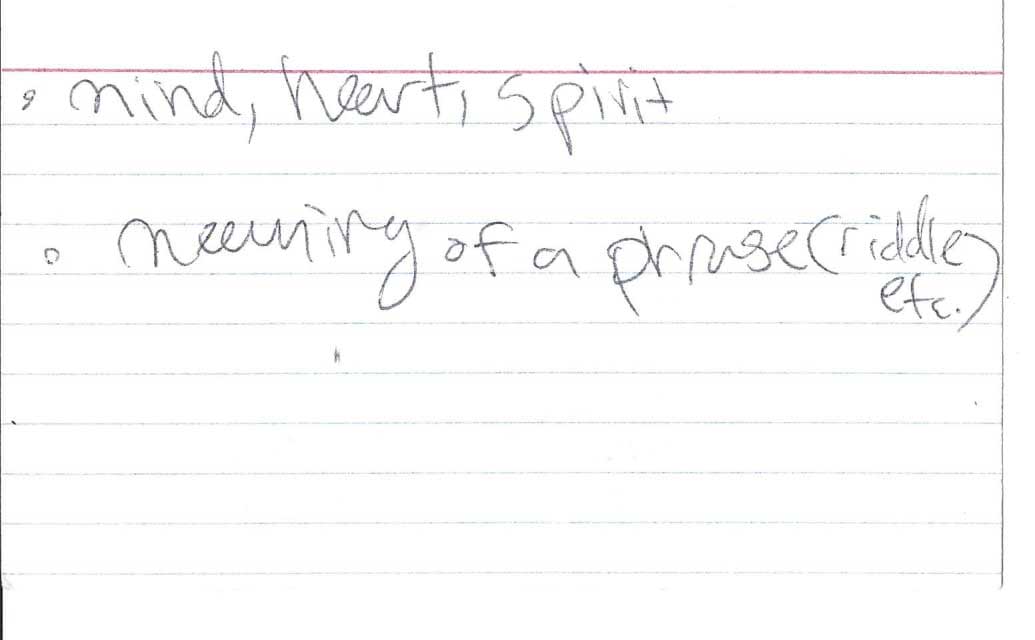 • mind, heart, spirit
• meaning of a phrase (riddle
etc.)